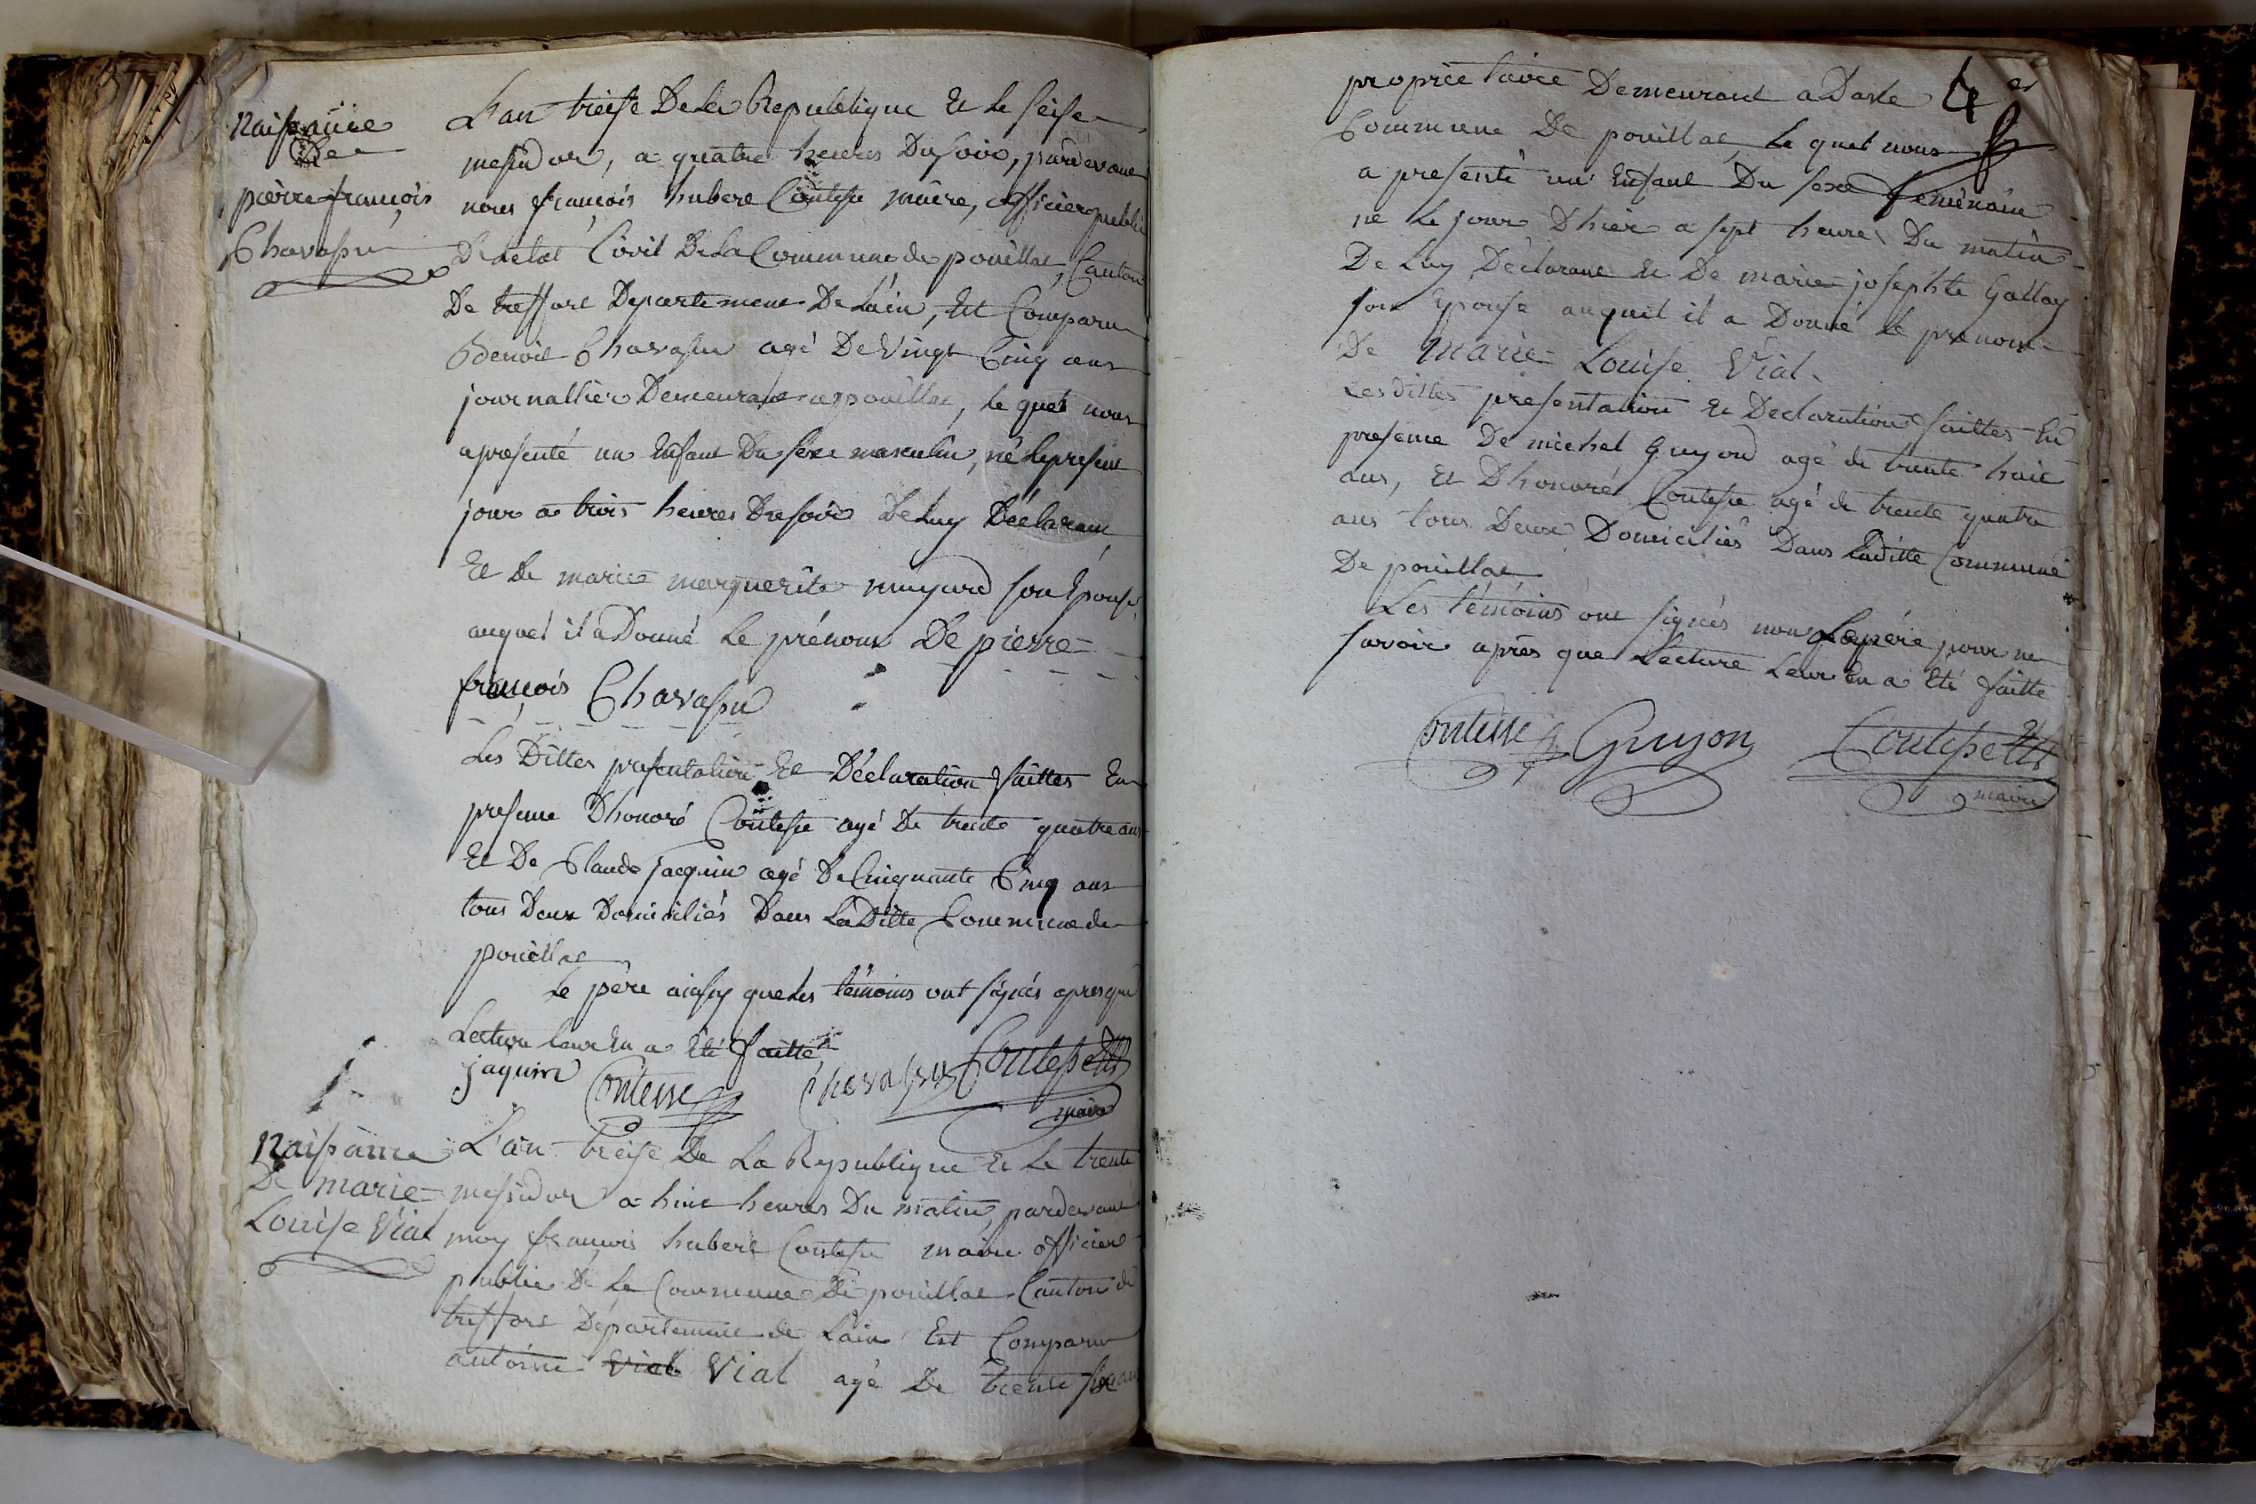 Naissance
De
pierre françois
Chavassu
L'an treise De la Republique Et le seise
messidor, a quatre heures Du soir, pardevant
nous françois hubert Contesse maire, officier public
De letat Civil De la Commune de pouillat, Canton
De treffort Departement De Lain, Est Comparu
Benoit Chavassu agé De Vingt Cinq ans
journallier Demeurant a pouillat, le quel nous
a présenté un Enfant Du sexe masculin, né le present
jour a trois heures Du soir De Luy Déclarant
Et De marie marguerite muyard son Epouse,
auquel il a Donné Le prénom De pierre
françois Chavassu
Les Dittes presentation Et Déclaration faittes En
presence D'honoré Contesse agé De trente quatre ans
Et De Claude jacquin agé De Cinquante Cinq ans
tous Deux Domiciliés Dans La Ditte Commune de
pouillat
Le père ainsy que les témoins ont signés apres que
Lecture leur En a Eté faitte
jaquin Contesse Chavassu Contesse
maire
Naissance
De marie
Louise Vial
L'an treise De La Republique Et Le trente
messidor a huit heures Du matin, pardevant
moy françois hubert Contesse maire officier
public De La Commune De pouillat Canton de
treffort Département de Lain Est Comparu
antoine Vial Vial agé De trente six ans
propriétaire Demeurant a Daste
Commune De pouillat, Le quel nous
a presenté un Enfant Du sexe feminain
né Le jour D'hier a sept heures Du matin
De Luy Déclarant Et De marie josephte Gallay
son Epouse auquel il a Donné le prenom
De Marie Louise Vial
Les Dittes presentation Et Declaration faittes En
presence De michel Guyon agé de trente huit
ans, Et D'honoré Contesse agé de trente quatre
ans tous Deux Domiciliés Dans Laditte Commune
De pouillat
Les témoins ont signés non Le père pour ne
savoir après que Lecture Leur En a Eté faitte
Contesse Guyon Contesse
maire